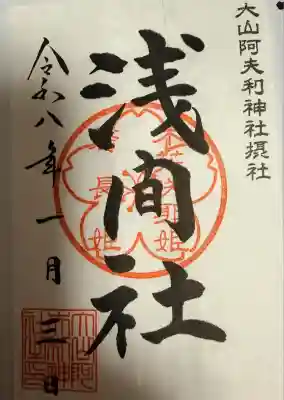 大山阿夫利神社摂社
浅間社
令和八年一月三日